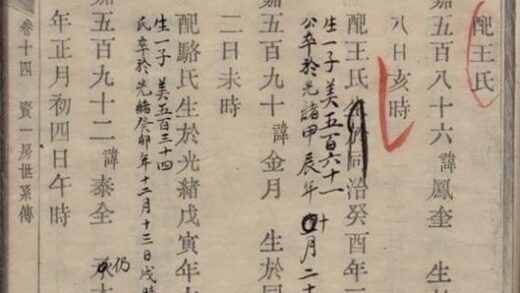 配王氏
嘉五百八十六 諱鳳奎 生於
八日亥時
配王氏 生於同治癸酉年
生一子 美五百六十一
公卒於光緒甲辰年 月二十
嘉五百九十 諱金月 生於同
二日未時
配駱氏生於光緒戊寅年
生一子 美五百三十四
氏卒於光緒癸卯年十二月十三日戌時
嘉五百九十二 諱泰全 承 仍
年正月初四日午時
卷十四 賢一房世系傳